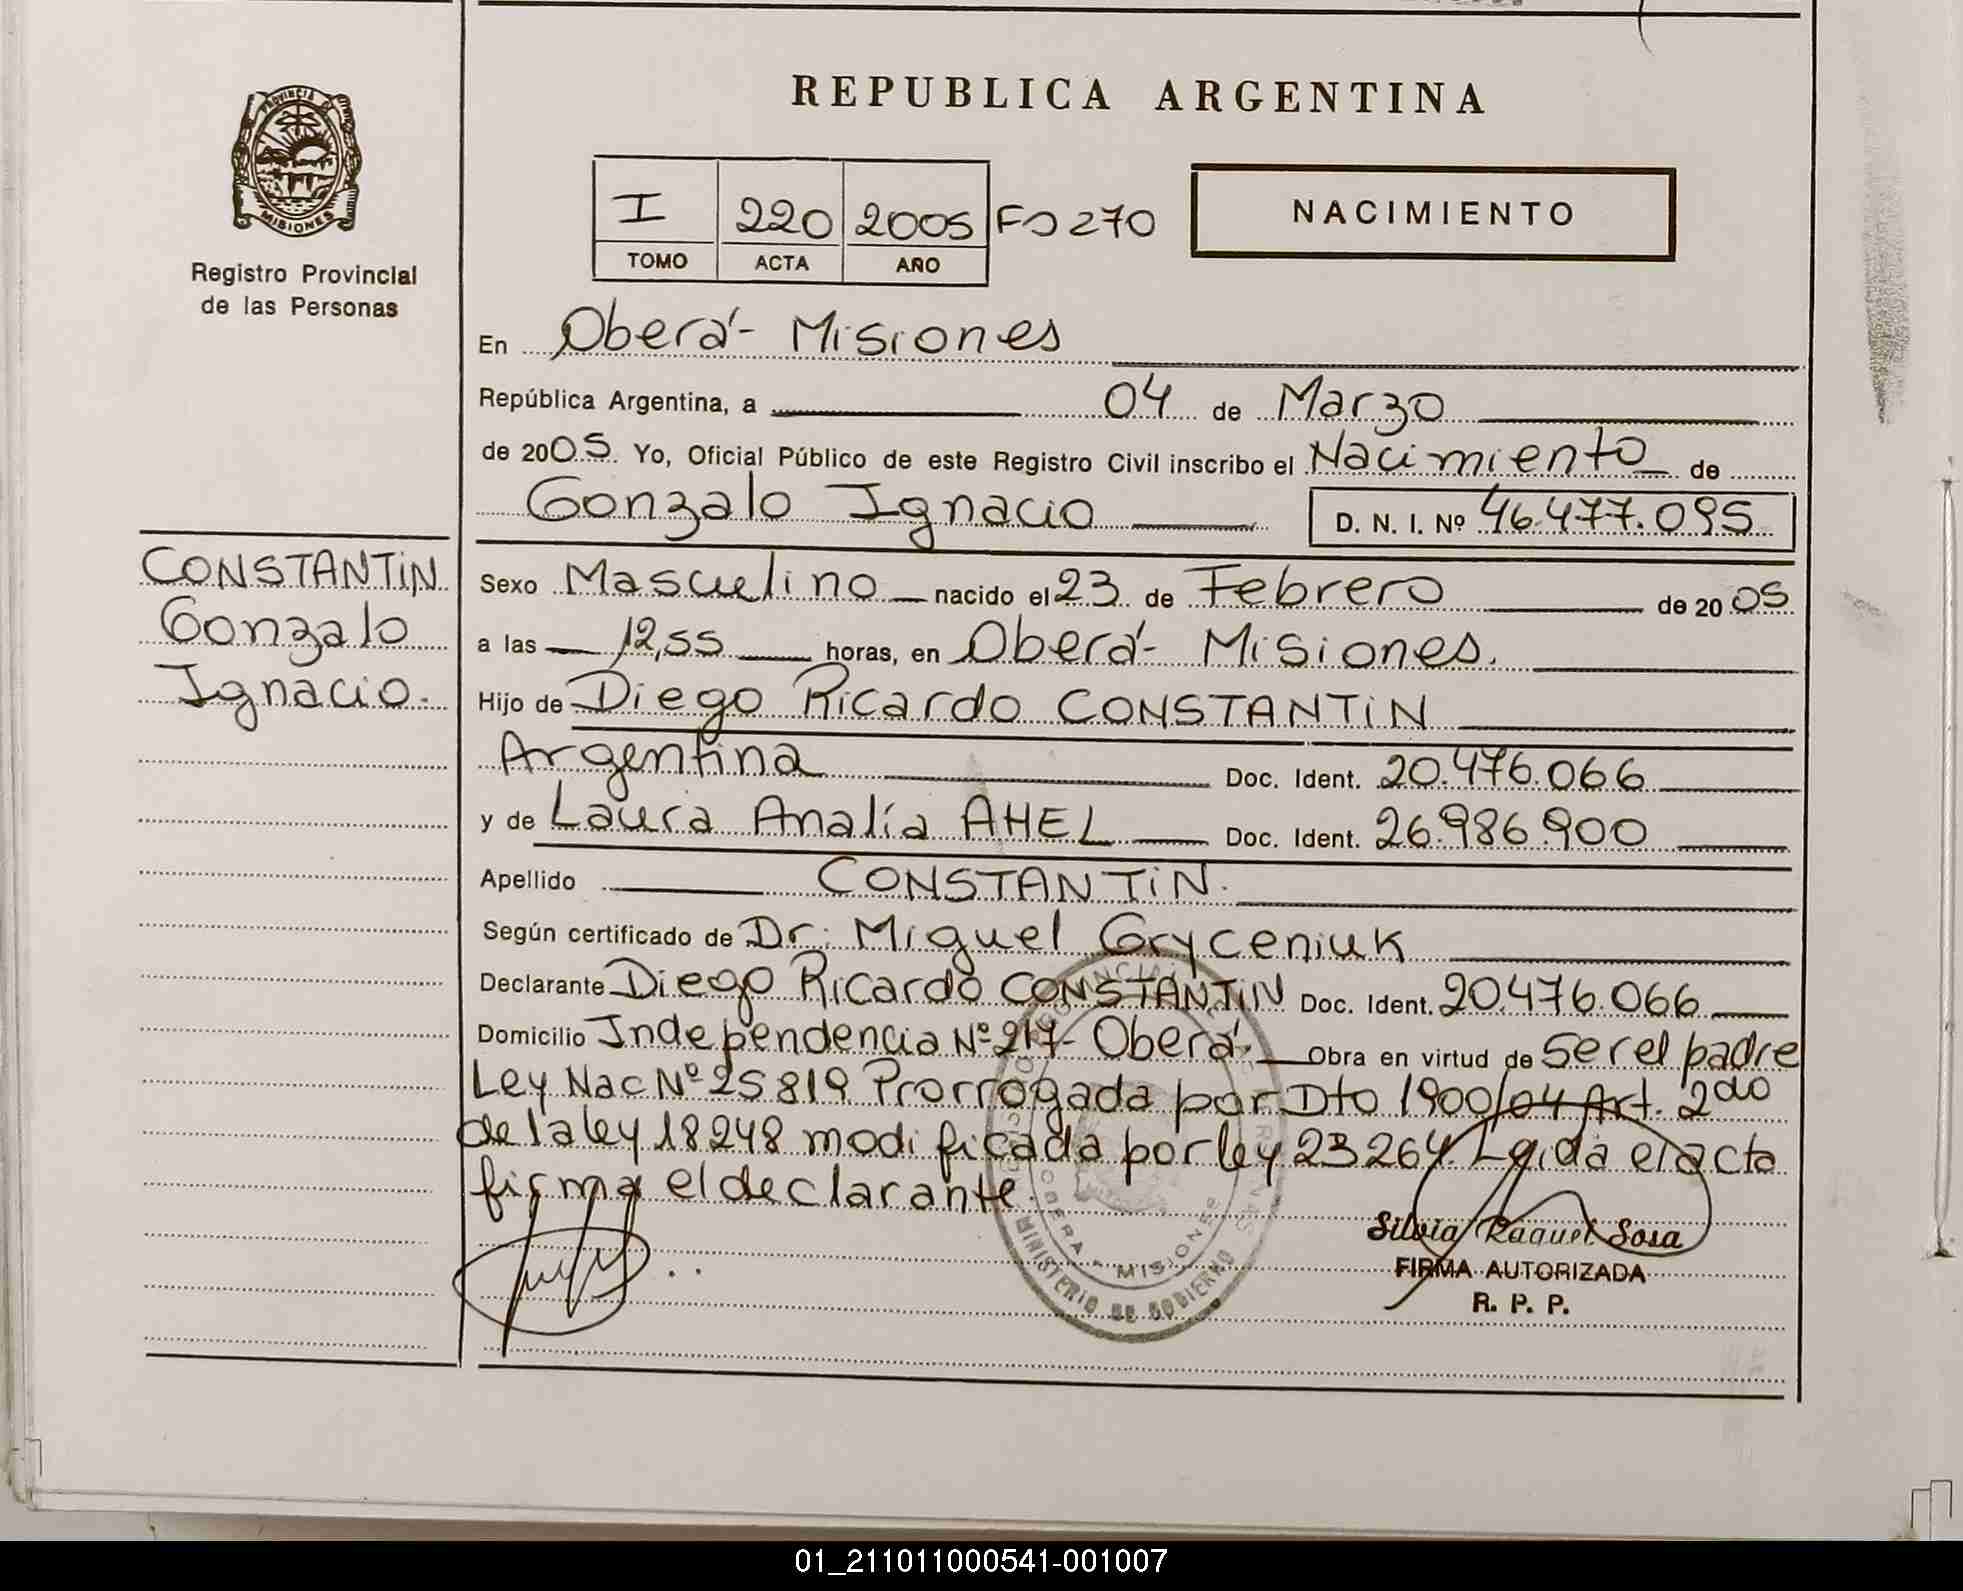 REPUBLICA ARGENTINA
PROVINCIA DE
MISIONES
Registro Provincial
de las Personas
I 220 2005 Fo 270
TOMO ACTA AÑO
NACIMIENTO
En Oberá - Misiones
República Argentina, a 04 de Marzo
de 2005 Yo, Oficial Público de este Registro Civil inscribo el Nacimiento de
Gonzalo Ignacio D. N. I. Nº 46.477.095
CONSTANTiN
Gonzalo
Ignacio.
Sexo Masculino nacido el 23 de Febrero de 2005
a las 12,55 horas, en Oberá - Misiones.
Hijo de Diego Ricardo CONSTANTiN
Argentina Doc. Ident. 20.476.066
y de Laura Analía AHEL Doc. Ident. 26.986.900
Apellido CONSTANTiN.
Según certificado de Dr. Miguel Gryceniuk
Declarante Diego Ricardo CONSTANTiN Doc. Ident. 20.476.066
Domicilio Independencia Nº 217 - Oberá. Obra en virtud de ser el padre
Ley Nac Nº 25819 Prorrogada por Dto 1900/04 Art. 2do
de la ley 18248 modificada por ley 23264. Leida el acta
firma el declarante.
OBERA - MISIONES
MINISTERIO DE GOBIERNO
Silvia Raquel Sosa
FIRMA AUTORIZADA
R. P. P.
01_211011000541-001007